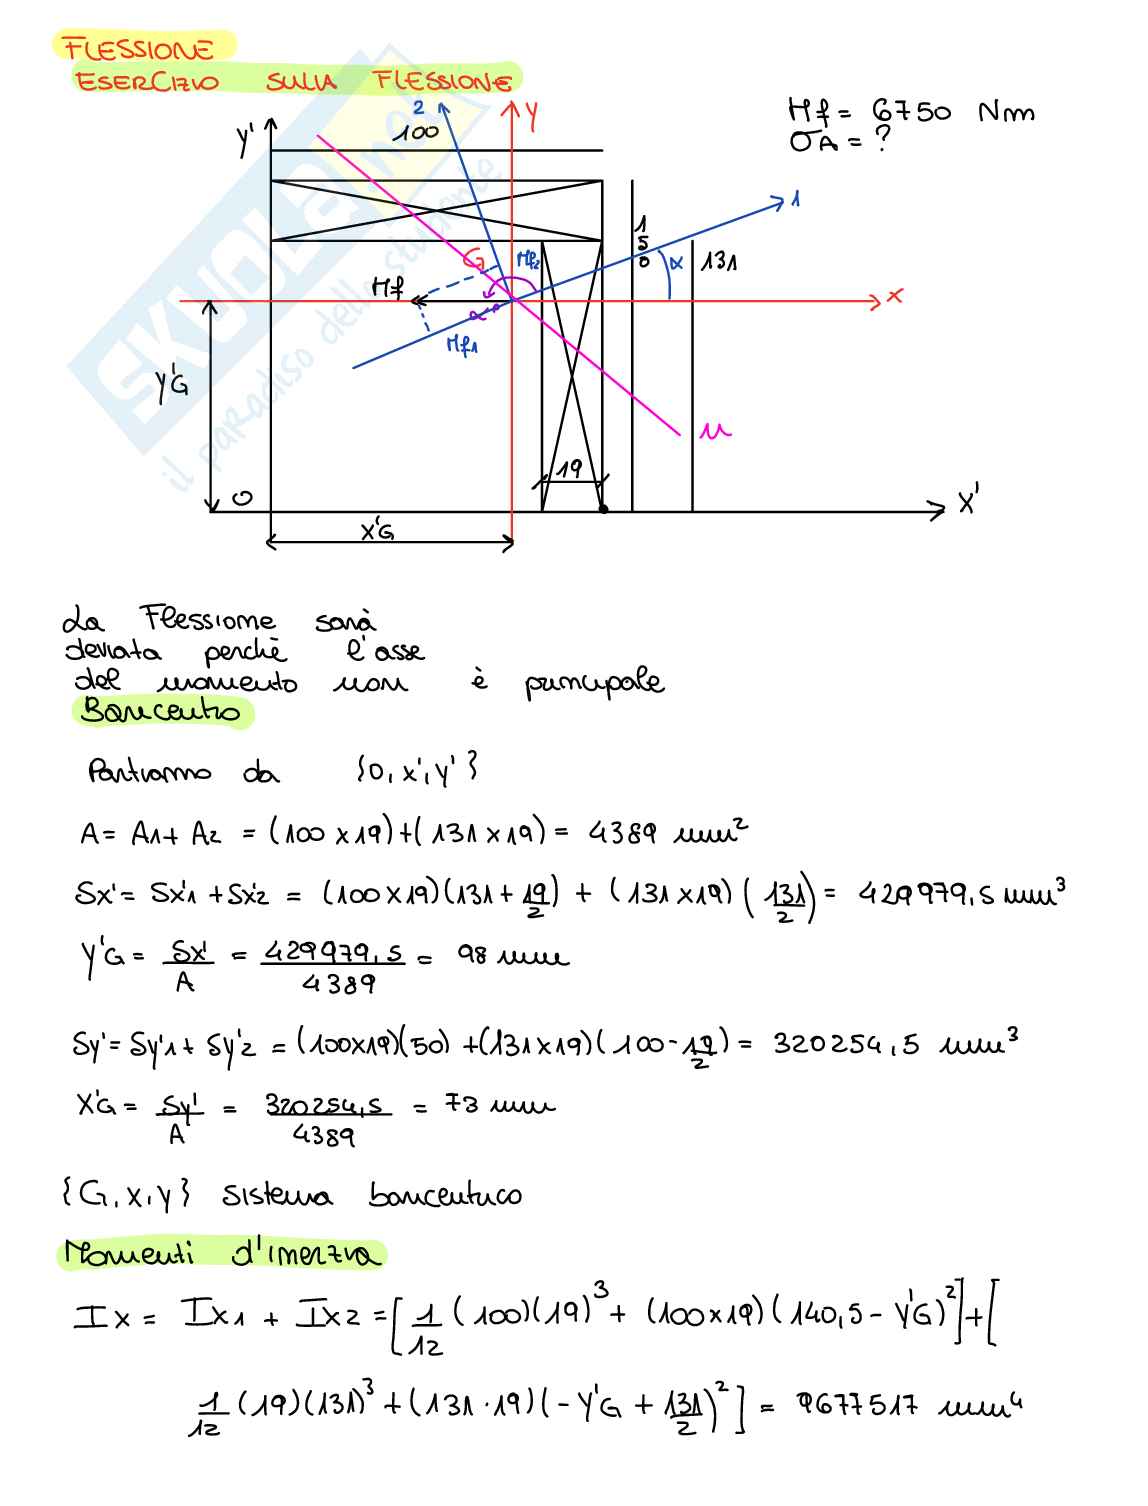 FLESSIONE
ESERCIZIO SULLA FLESSIONE
Mf = 6750 Nm
σA = ?
Y'
100
2
Y
1
G
Mf2
1
5
0
α
131
Mf
α
x
Mf1
Y'G
u
19
O
X'
X'G
SKUOLA.net
il paradiso dello studente
La Flessione sarà
deviata perchè l'asse
del momento non è principale
Baricentro
Partiamo da {0, x', y'}
A = A1 + A2 = (100 x 19) + (131 x 19) = 4389 mm²
Sx' = Sx'1 + Sx'2 = (100 x 19)(131 + 19/2) + (131 x 19)(131/2) = 429979,5 mm³
Y'G = Sx'/A = 429979,5/4389 = 98 mm
Sy' = Sy'1 + Sy'2 = (100x19)(50) + (131x19)(100 - 19/2) = 320254,5 mm³
X'G = Sy'/A = 320254,5/4389 = 73 mm
{G, x, y} sistema baricentrico
Momenti d'inerzia
Ix = Ix1 + Ix2 = [1/12 (100)(19)³ + (100x19)(140,5 - Y'G)²] + [
1/12 (19)(131)³ + (131·19)(-Y'G + 131/2)²] = 9677517 mm⁴